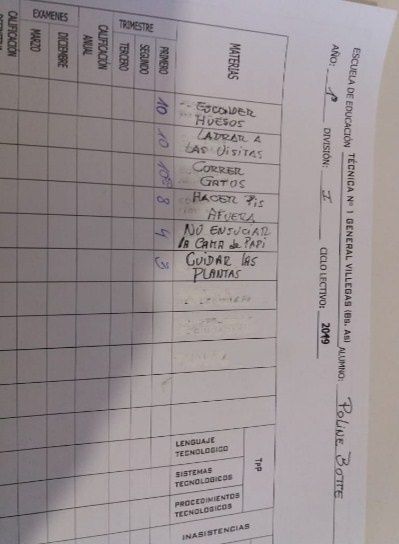 ESCUELA DE EDUCACIÓN TÉCNICA Nº 1 GENERAL VILLEGAS (BS. AS) ALUMNO: POLINE BOTTE
AÑO: 1º DIVISIÓN: I CICLO LECTIVO: 2019
MATERIAS
TRIMESTRE
PRIMERO
SEGUNDO
TERCERO
CALIFICACIÓN ANUAL
EXAMENES
DICIEMBRE
MARZO
CALIFICACIÓN
ESCONDER HUESOS 10
LADRAR A LAS VISITAS 10
CORRER GATOS 10
HACER PIS AFUERA 8
NO ENSUCIAR LA CAMA de PAPI 4
CUIDAR LAS PLANTAS 3
TPP
LENGUAJE TECNOLOGICO
SISTEMAS TECNOLOGICOS
PROCEDIMIENTOS TECNOLOGICOS
INASISTENCIAS